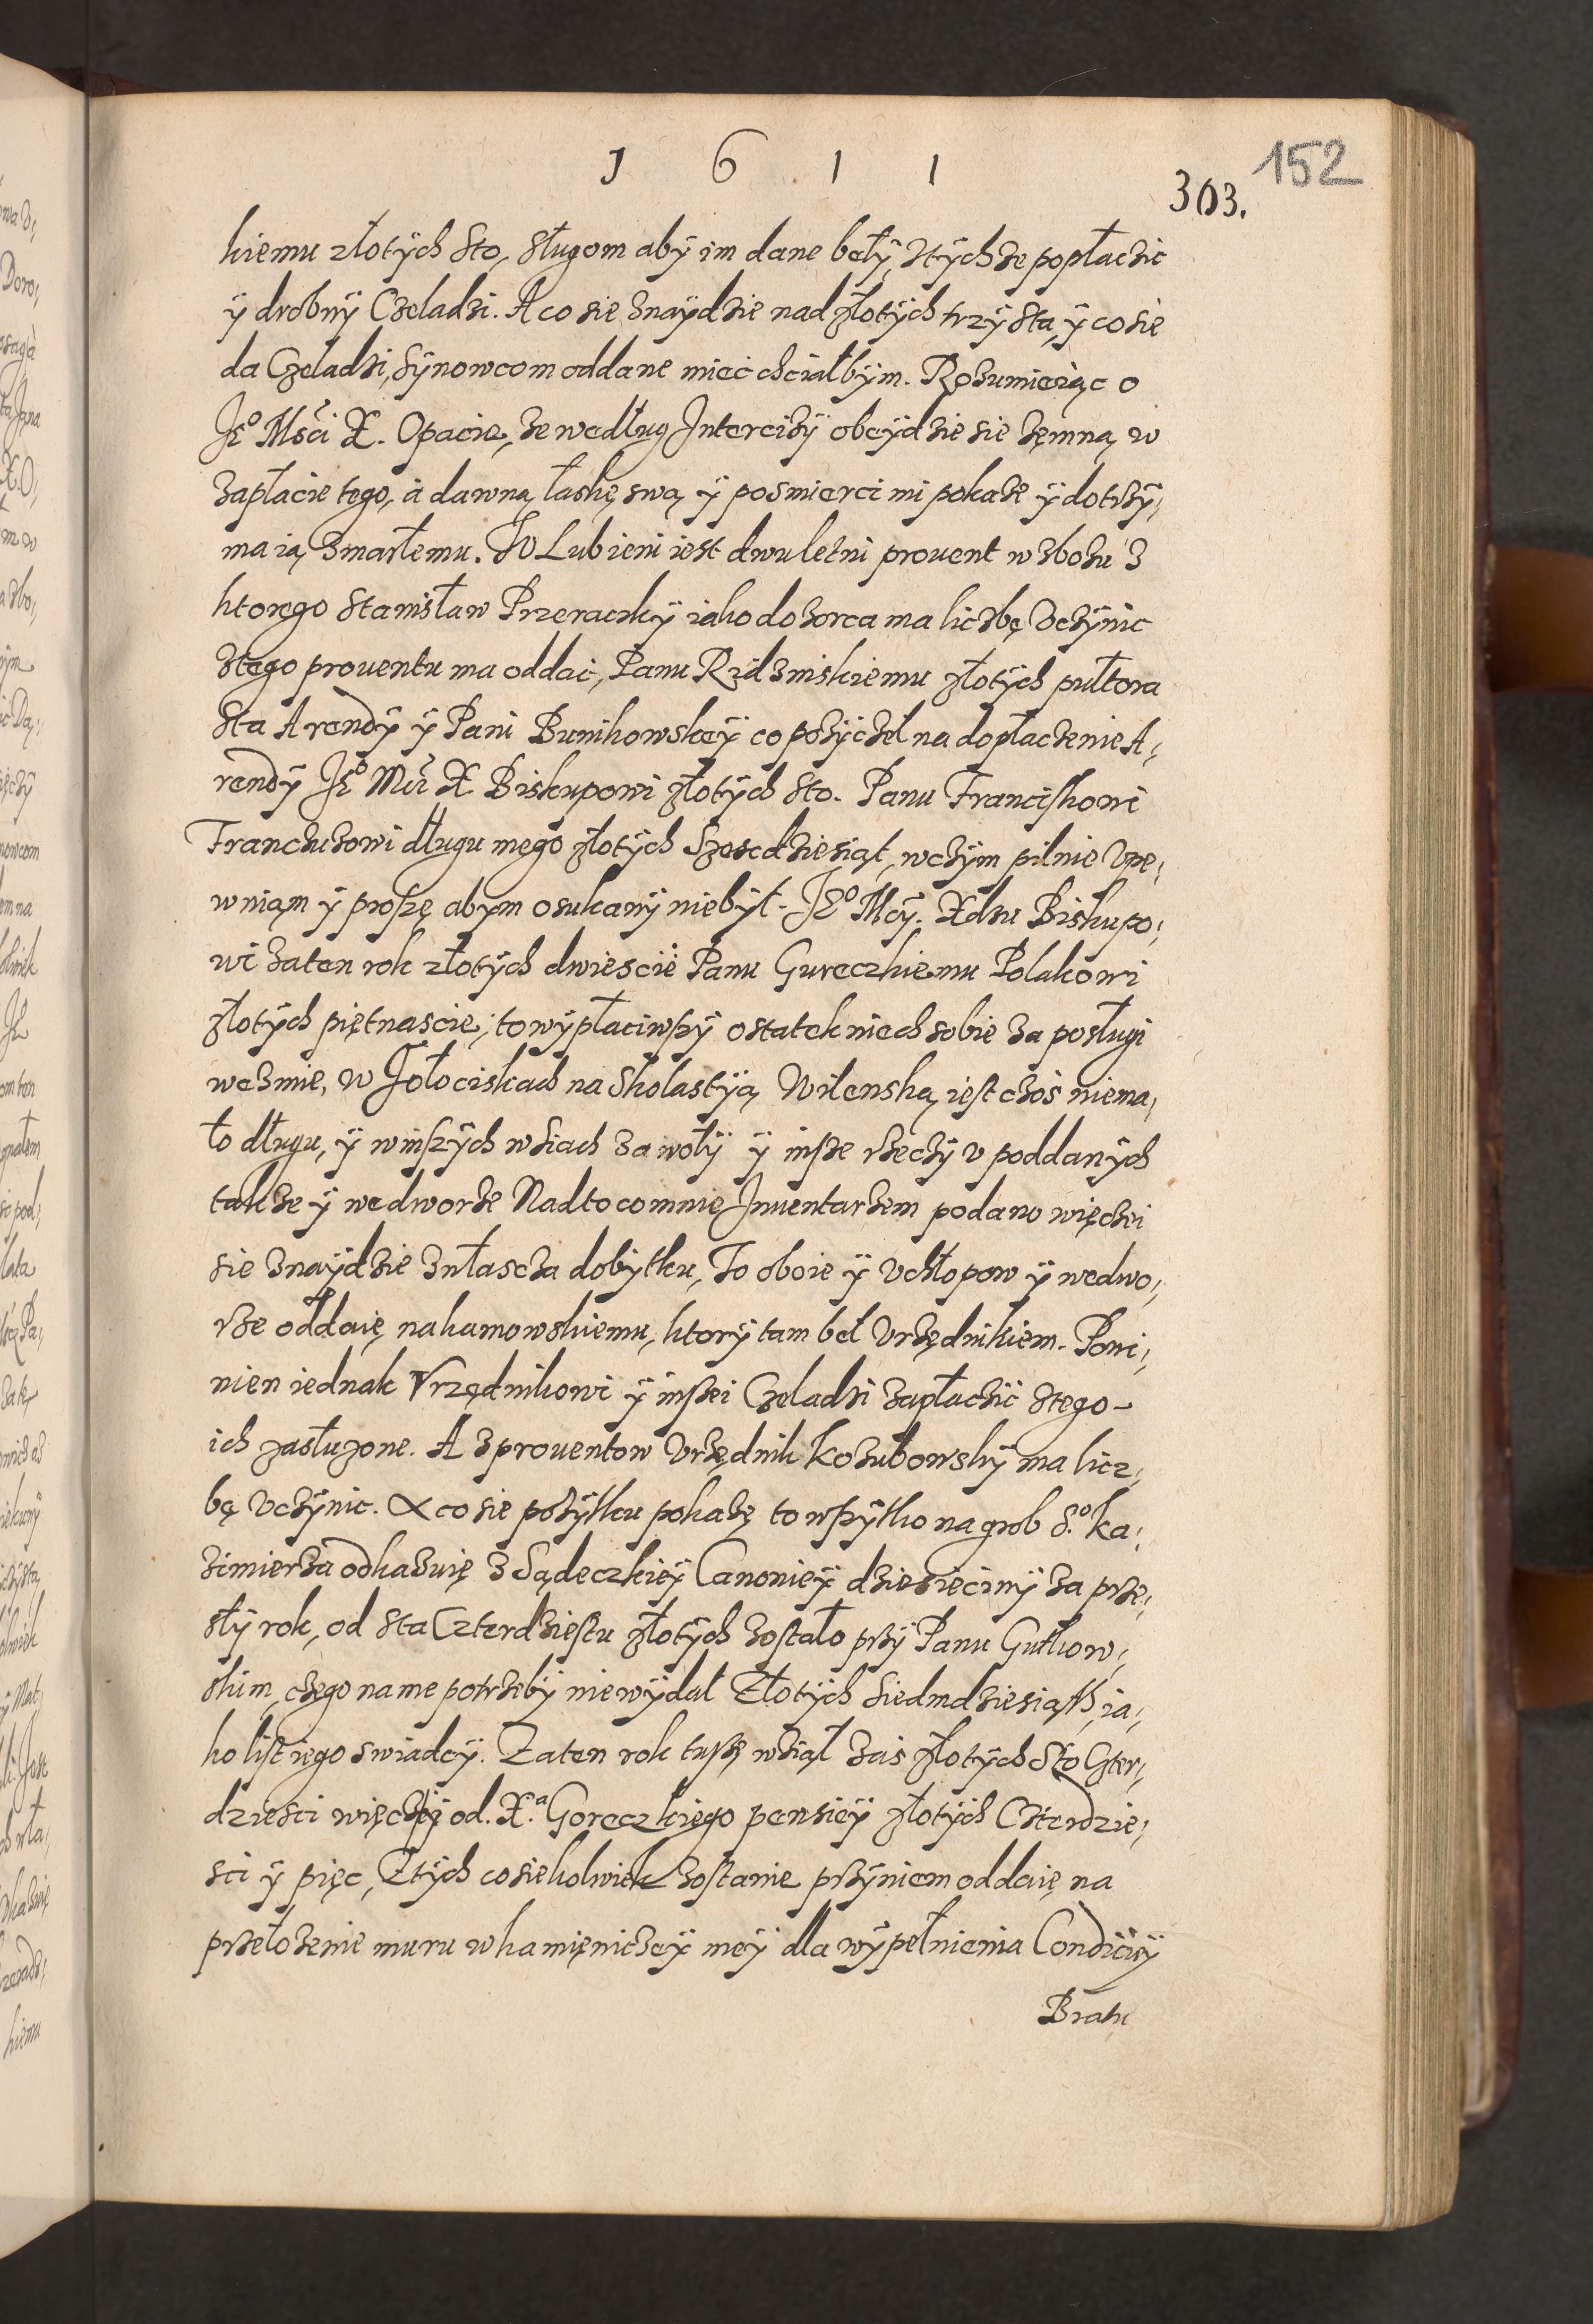 1 6 1 1
152
303.
kiemu złotÿch sto, sługom abÿ im dane bełÿ, ztÿchze popłaczic
ÿ drobnÿ Czeladzi. A co sie znaÿdzie nad złotÿch trzÿ sta, ÿ co sie
da Czeladzi, Sÿnowcom oddane mieć chciałbÿm. Rozumieiąc o
Je° Mści X. Opacie, ze według Intercizÿ obeÿdzie sie zęmną w
zapłacie tego, a dawną łaskę swą ÿ posmierci mi pokaze ÿ dotrzÿ,
ma ią zmarłemu. W Lubieni iest dwuletni prouent w zbozu z
ktorego Stanisław Przeraczkÿ iako dozorca ma liczbę vczÿnic
ztego prouentu ma oddać, Panu Ridzinskiemu złotÿch pułtora
sta Arendÿ ÿ Pani Bunikowskeÿ co pozÿczeł na dopłaczenie A,
rendÿ Je° Mci X. Biskupowi złotÿch sto. Panu Franciskowi
Franczuzowi długu mego złotÿch Szescdziesiąt, wczÿm pilnie vpe,
wniąm ÿ proszę abym osukanÿ niebÿł. Je° Mćÿ. Xdzu Biskupo,
wi zaten rok złotÿch dwiescie Panu Gureczkiemu Polakowi
złotÿch piętnascie; to wÿpłaciwszÿ ostatek niech sobie za posługi
wezmie, w Jołociskach na Skolastÿą Wilenską iest czoś niema,
ło długu, ÿ winszÿch wsiach za wołÿ ÿ insze rzeczÿ v poddanÿch
takze ÿ wedworze Nadto co mnie Inuentarzem podano więczei
sie znaÿdzie zwłascza dobÿtku, To oboie ÿ vchłopow ÿ wedwo,
rze oddaię nakamowskiemu, ktorÿ tam beł vrzędnikiem. Powi,
nien iednak Vrzędnikowi ÿ inszei Czeladzi zapłaczić ztego
ich zasłuzone. A zprouentow vrzędnik Kozubowskÿ ma licz,
bę vczÿnic. A co sie pozÿtku pokazę to wszÿtko na grob S.° Ka,
zimierza odkazuię z Sądeczkieÿ Canonieÿ dziesięcinÿ za prze,
słÿ rok, od sta Czterdziestu złotÿch zostało przÿ Panu Gutkow,
skim, czego na me potrzebÿ niewÿdał Złotÿch Siedmdziesiąth, ia,
ko list iego swiadcÿ. Zaten rok tuszę wziął zaś złotÿch Sto Czter,
dziesci więczÿ od. X.ª Goreczkiego pensieÿ złotÿch Czterdzie,
sci ÿ pięc, Ztÿch cosiekolwiek zostanie przÿniem oddaię na
przełozenie muru w kamięniczeÿ meÿ dla wÿpełnienia Condiciÿ
Bratu